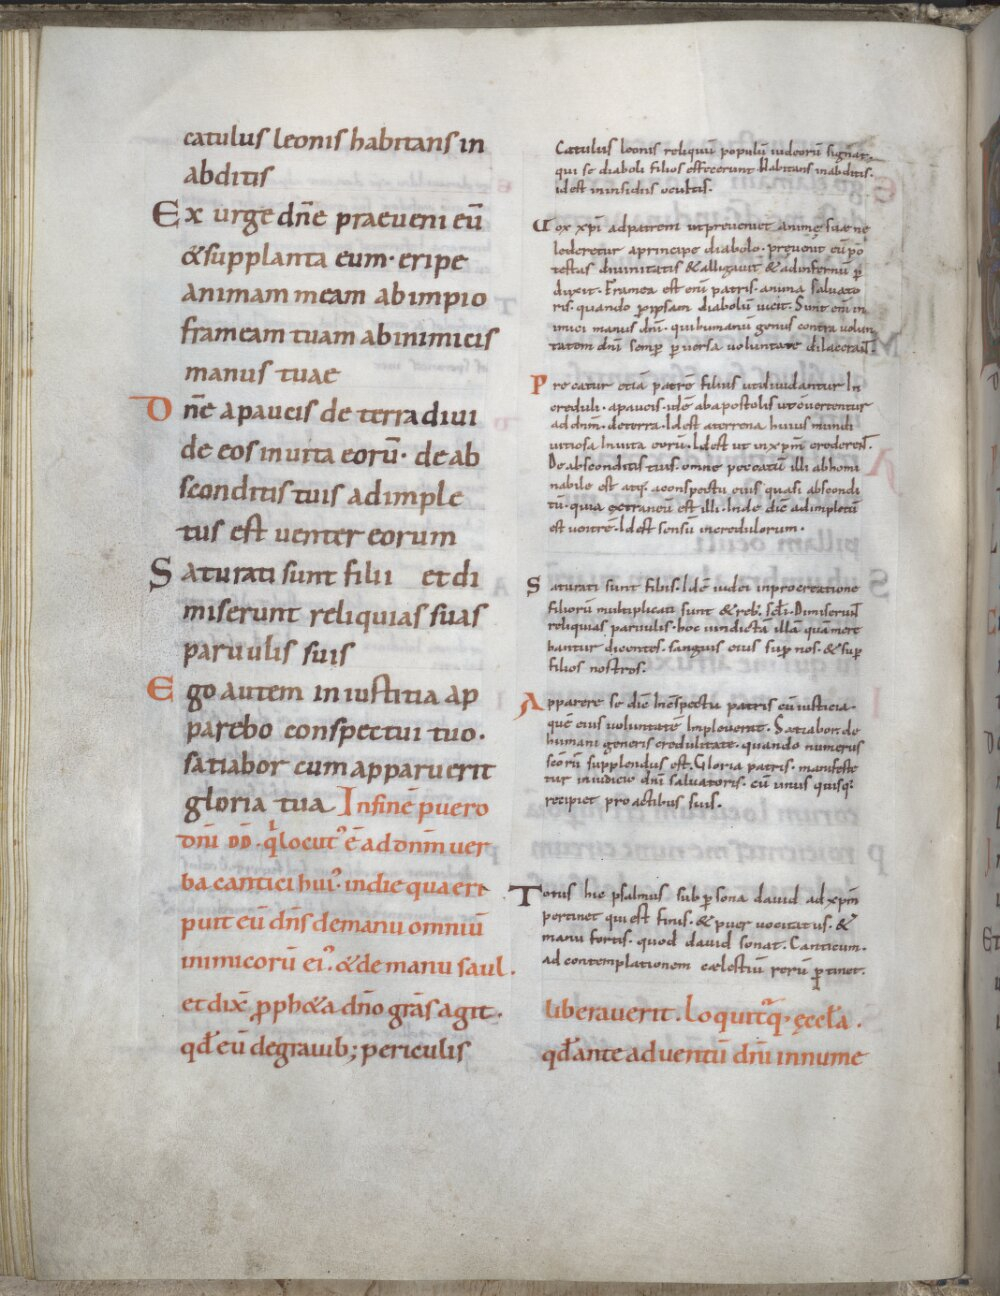 catulus leonis habitans in
abditis
Ex urge dn̄e praeveni eū
&supplanta eum· eripe
animam meam ab impio
frameam tuam ab inimicis
manus tuae
Dn̄e a paucis de terra divi
de eos in vita eorū· de ab
sconditis tuis adimple
tus est venter eorum
Saturati sunt filii et di
miserunt reliquias suas
parvulis suis
Ego autem in iustitia ap
parebo conspectui tuo·
satiabor cum apparuerit
gloria tua In finē puero
dn̄i DD· q̄ locut᾽ ē ad dn̄m ver
ba cantici hui᾽· in die qua eri
puit eū dn̄s de manu omniū
inimicorū ei᾽· & de manu saul.
et dix̄ ꝓph&a dn̄o grās agit·
qđ eū de gravib; periculis
Catulus leonis reliquū populū iudeorū signat,
qui se diaboli filios effecerunt. Habitans in abditis·
id est in insidiis ocultis.
Vox xp̄i ad patrem ut preveniet animę suae ne
lederetur a principe diabolo· prevenit eū po
testas divinitatis & alligavit & ad infernū ꝑ
duxit· Framea est enī patris· anima salvato
ris· quando ꝑ ipsam diabolū vicit· Sunt enī in
imici manus dn̄i· qui humanū genus contra volun
tatem dn̄i semꝑ ꝑversa voluntate dilacerant̄
Precatur etiā patrē filius ut dividantur In
creduli· a paucis· idē ab apostolis ut convertentur
ad dn̄m· de terra· Id est a terrena huius mundi
vitiosa In vita eorū· Id est ut in xp̄m crederent̄·
De absconditis tuis· omne peccatū illi abhomi
nabile est atq· a conspectu eius quasi abscondi
tū· quia extraneū est illi· Inde dic̄ adimpletū
est ventrē· Id est sensū incredulorum·
Saturati sunt filiis· Idē iudei in procreatione
filiorū multiplicati sunt & reb; scl̄i· Dimiserunt̄
reliquias parvulis· hoc vindictā illā quā mere
bantur dicentes· sanguis eius suꝑ nos· & suꝑ
filios nostros·
Apparere se dic̄ In c̄spectu patris cū iusticia·
quē eius voluntatē Impleverat· Satiabor· de
humani generis credulitate· quando numerus
sc̄orū supplendus est· Gloria patris· manifeste
tur in iudicio dn̄i salvatoris· cū unus quisq·
recipiet pro actibus suis·
Totus hic psalmus sub ꝑsona david ad xp̄m
pertinet qui est finis· & puer vocitatus· &
manu fortis· quod david sonat· Canticum·
ad contemplationem cælestiū rerū ꝑtinet·
liberaverit· Loquit᾽ q̄· ęccl̄a·
qđ ante adventū dn̄i innume